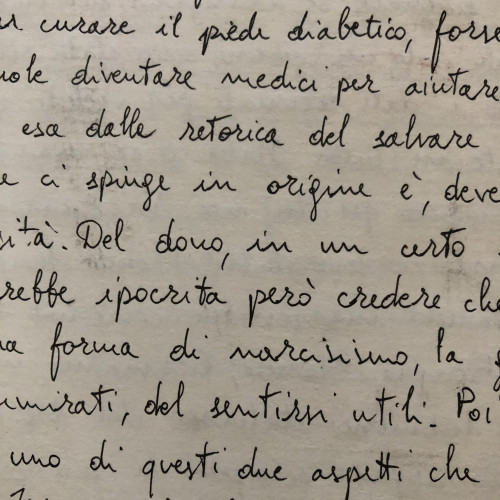 er curare il piede diabetico, forse
uole diventare medici per aiutare
esa dalle retorica del salvare
e ci spinge in origine è, deve
sità. Del dono, in un certo
rebbe ipocrita però credere che
na forma di narcisismo, la
mmirati, del sentirsi utili. Poi
uno di questi due aspetti che